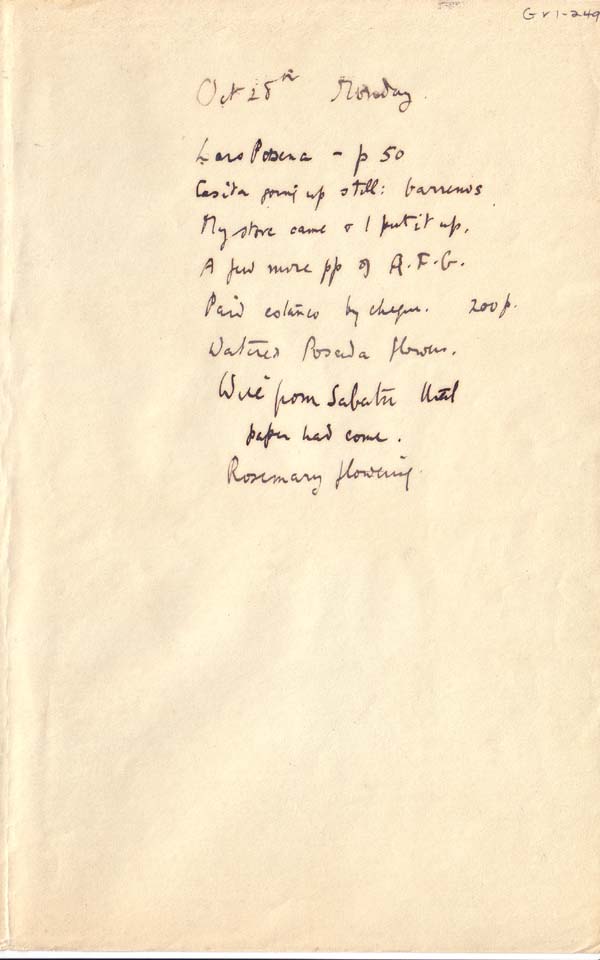 Gr 1-249
Oct 28th Monday.
Lars Posena - p 50
Casita going up still: barrenos
My stove came & I put it up.
A few more pp of R.F.G.
Paid estanco by cheque. 200 p.
Watered Posada flowers.
Wire from Sabater that
paper had come.
Rosemary flowering.